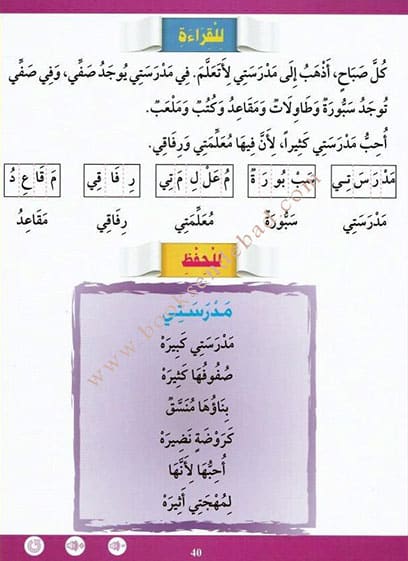 لِلْقِرَاءَةِ
كُلَّ صَبَاحٍ، أَذْهَبُ إِلَى مَدْرَسَتِي لِأَتَعَلَّمَ. فِي مَدْرَسَتِي يُوجَدُ صَفِّي، وَفِي صَفِّي
تُوجَدُ سَبُّورَةٌ وَطَاوِلَاتٌ وَمَقَاعِدُ وَكُتُبٌ وَمَلْعَبٌ.
أُحِبُّ مَدْرَسَتِي كَثِيراً، لِأَنَّ فِيهَا مُعَلِّمَتِي وَرِفَاقِي.
مَدْ رَ سَ تِـي سَبْ بُو رَ ةٌ مُ عَلْ لِ مَ تِي رِ فَا قِي مَ قَا عِ دُ
مَدْرَسَتِي سَبُّورَةٌ مُعَلِّمَتِي رِفَاقِي مَقَاعِدُ
لِلْحِفْظِ
مَدْرَسَتِي
مَدْرَسَتِي كَبِيرَهْ
صُفُوفُهَا كَثِيرَهْ
بِنَاؤُهَا مُنَسَّقٌ
كَرَوْضَةٍ نَضِيرَهْ
أُحِبُّهَا لِأَنَّهَا
لِمُهْجَتِي أَثِيرَهْ
40